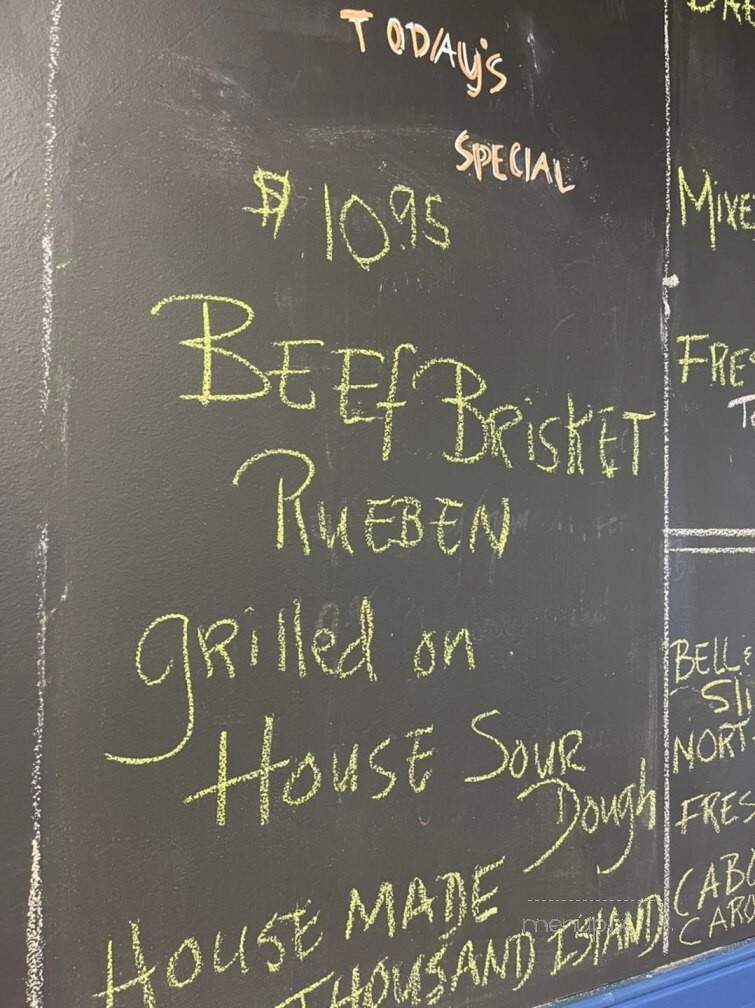 TODAY'S
SPECIAL
$10.95
BEEf BRISKET
RUEBEN
grilled on
HOUSE SOUR
Dough
HOUSE MADE
THOUSAND ISLAND
MIXE
FRE
BELL &
NORT
FRES
CABO
CARO
menupix